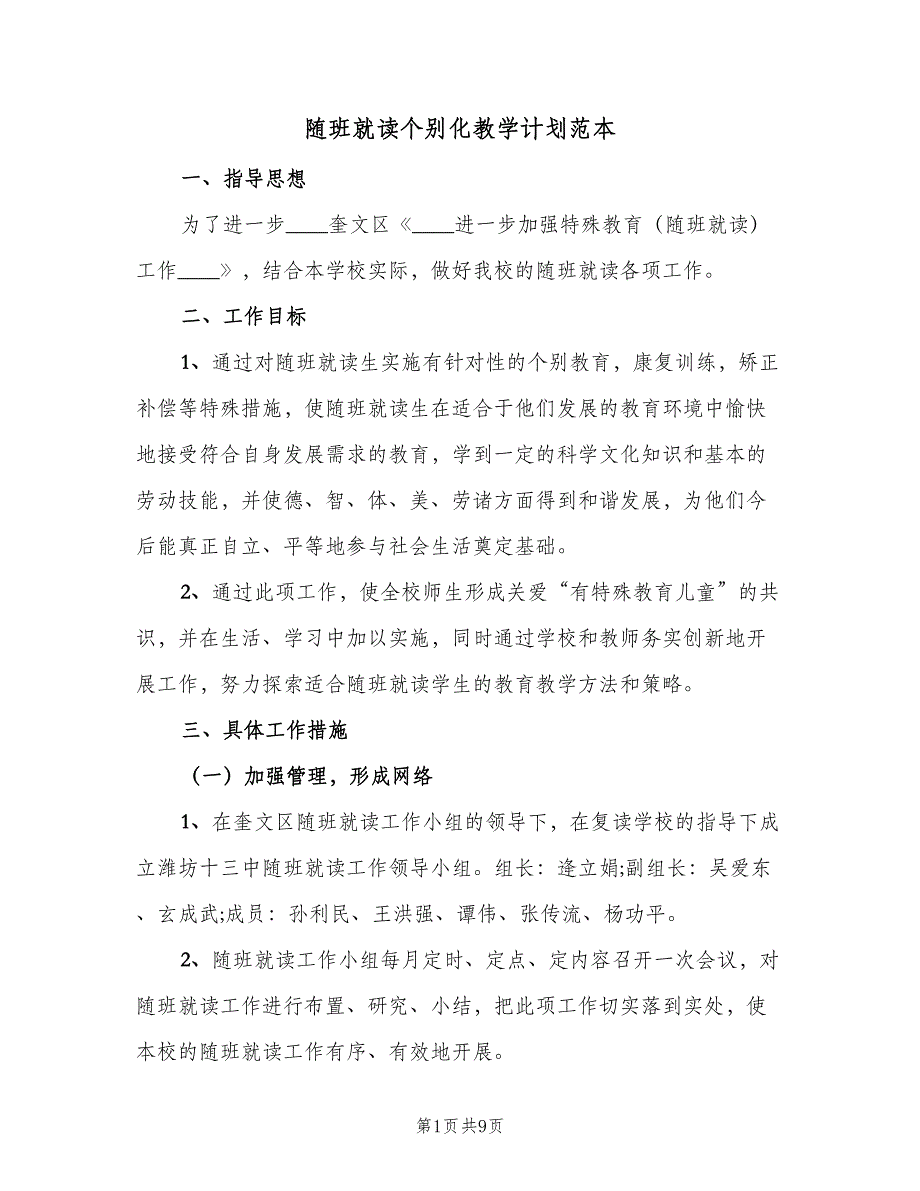 随班就读个别化教学计划范本
一、指导思想
为了进一步____奎文区《____进一步加强特殊教育（随班就读）
工作____》，结合本学校实际，做好我校的随班就读各项工作。
二、工作目标
1、通过对随班就读生实施有针对性的个别教育，康复训练，矫正
补偿等特殊措施，使随班就读生在适合于他们发展的教育环境中愉快
地接受符合自身发展需求的教育，学到一定的科学文化知识和基本的
劳动技能，并使德、智、体、美、劳诸方面得到和谐发展，为他们今
后能真正自立、平等地参与社会生活奠定基础。
2、通过此项工作，使全校师生形成关爱“有特殊教育儿童”的共
识，并在生活、学习中加以实施，同时通过学校和教师务实创新地开
展工作，努力探索适合随班就读学生的教育教学方法和策略。
三、具体工作措施
（一）加强管理，形成网络
1、在奎文区随班就读工作小组的领导下，在复读学校的指导下成
立潍坊十三中随班就读工作领导小组。组长：逄立娟;副组长：吴爱东
、玄成武;成员：孙利民、王洪强、谭伟、张传流、杨功平。
2、随班就读工作小组每月定时、定点、定内容召开一次会议，对
随班就读工作进行布置、研究、小结，把此项工作切实落到实处，使
本校的随班就读工作有序、有效地开展。
第1页 共9页